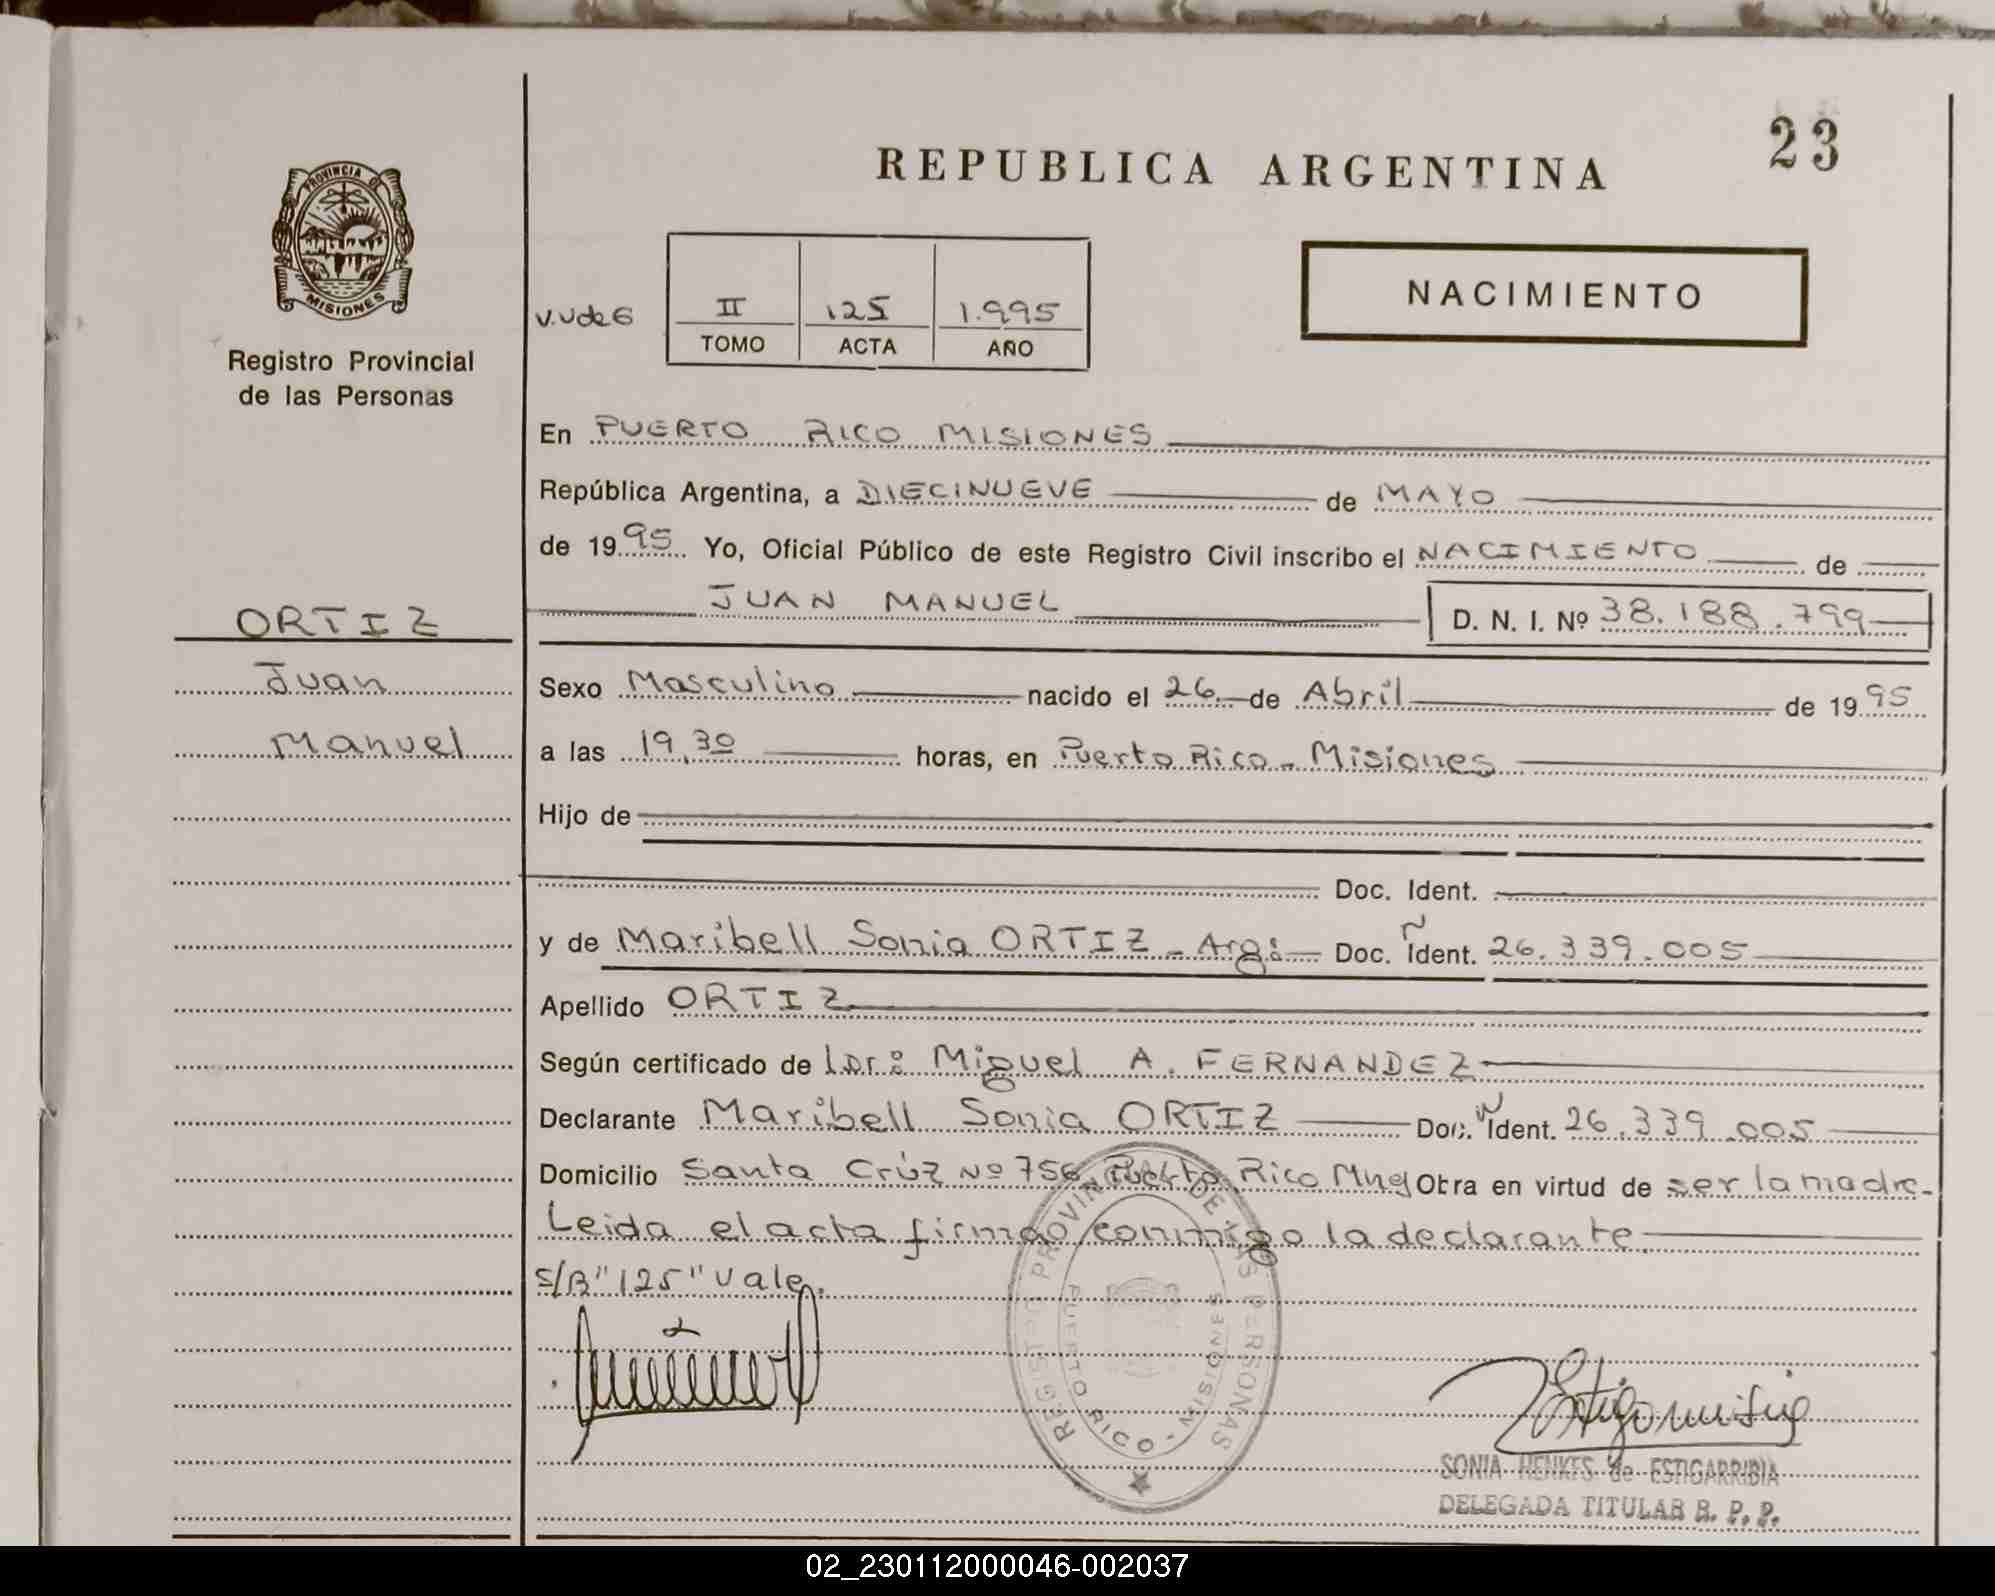 23
REPUBLICA ARGENTINA
PROVINCIA DE
MISIONES
NACIMIENTO
II 125 1.995
TOMO ACTA AÑO
Registro Provincial
de las Personas
En PUERTO RICO MISIONES
República Argentina, a DIECINUEVE de MAYO
de 1995 Yo, Oficial Público de este Registro Civil inscribo el NACIMIENTO de
JUAN MANUEL D. N. I. Nº 38.188.799
ORTIZ
Juan
Manuel
Sexo Masculino nacido el 26 de Abril de 1995
a las 19,30 horas, en Puerto Rico - Misiones
Hijo de
Doc. Ident.
y de Maribell Sonia ORTIZ - Arg: Doc. Ident. 26.339.005
Apellido ORTIZ
Según certificado de Dr: Miguel A. FERNANDEZ
Declarante Maribell Sonia ORTIZ Doc. Ident. 26.339.005
Domicilio Santa Crúz Nº 756 Puerto Rico Mnes Obra en virtud de ser la madre-
Leida el acta firmao conmigo la declarante.
S/B "125" Vale.
REGISTRO PROVINCIAL DE LAS PERSONAS
PUERTO RICO - MISIONES
SONIA HENKES de ESTIGARRIBIA
DELEGADA TITULAR R. P. P.
02_230112000046-002037